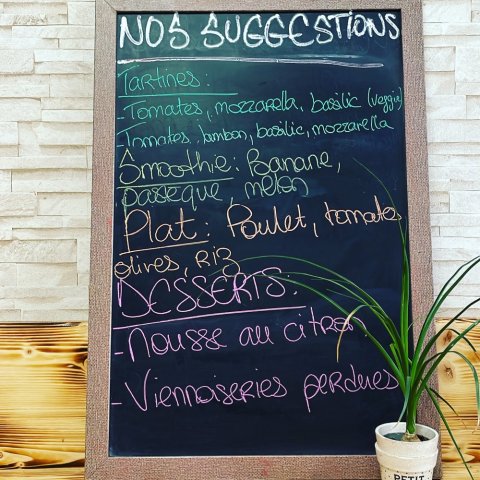 NOS SUGGESTIONS
Tartines :
- Tomates, mozzarella, basilic (veggie)
- Tomates, jambon, basilic, mozzarella
Smoothie : Banane,
pasteque, melon
Plat : Poulet, tomates
olives, Riz
DESSERTS :
- Mousse au citron
- Viennoiseries perdues
PETIT